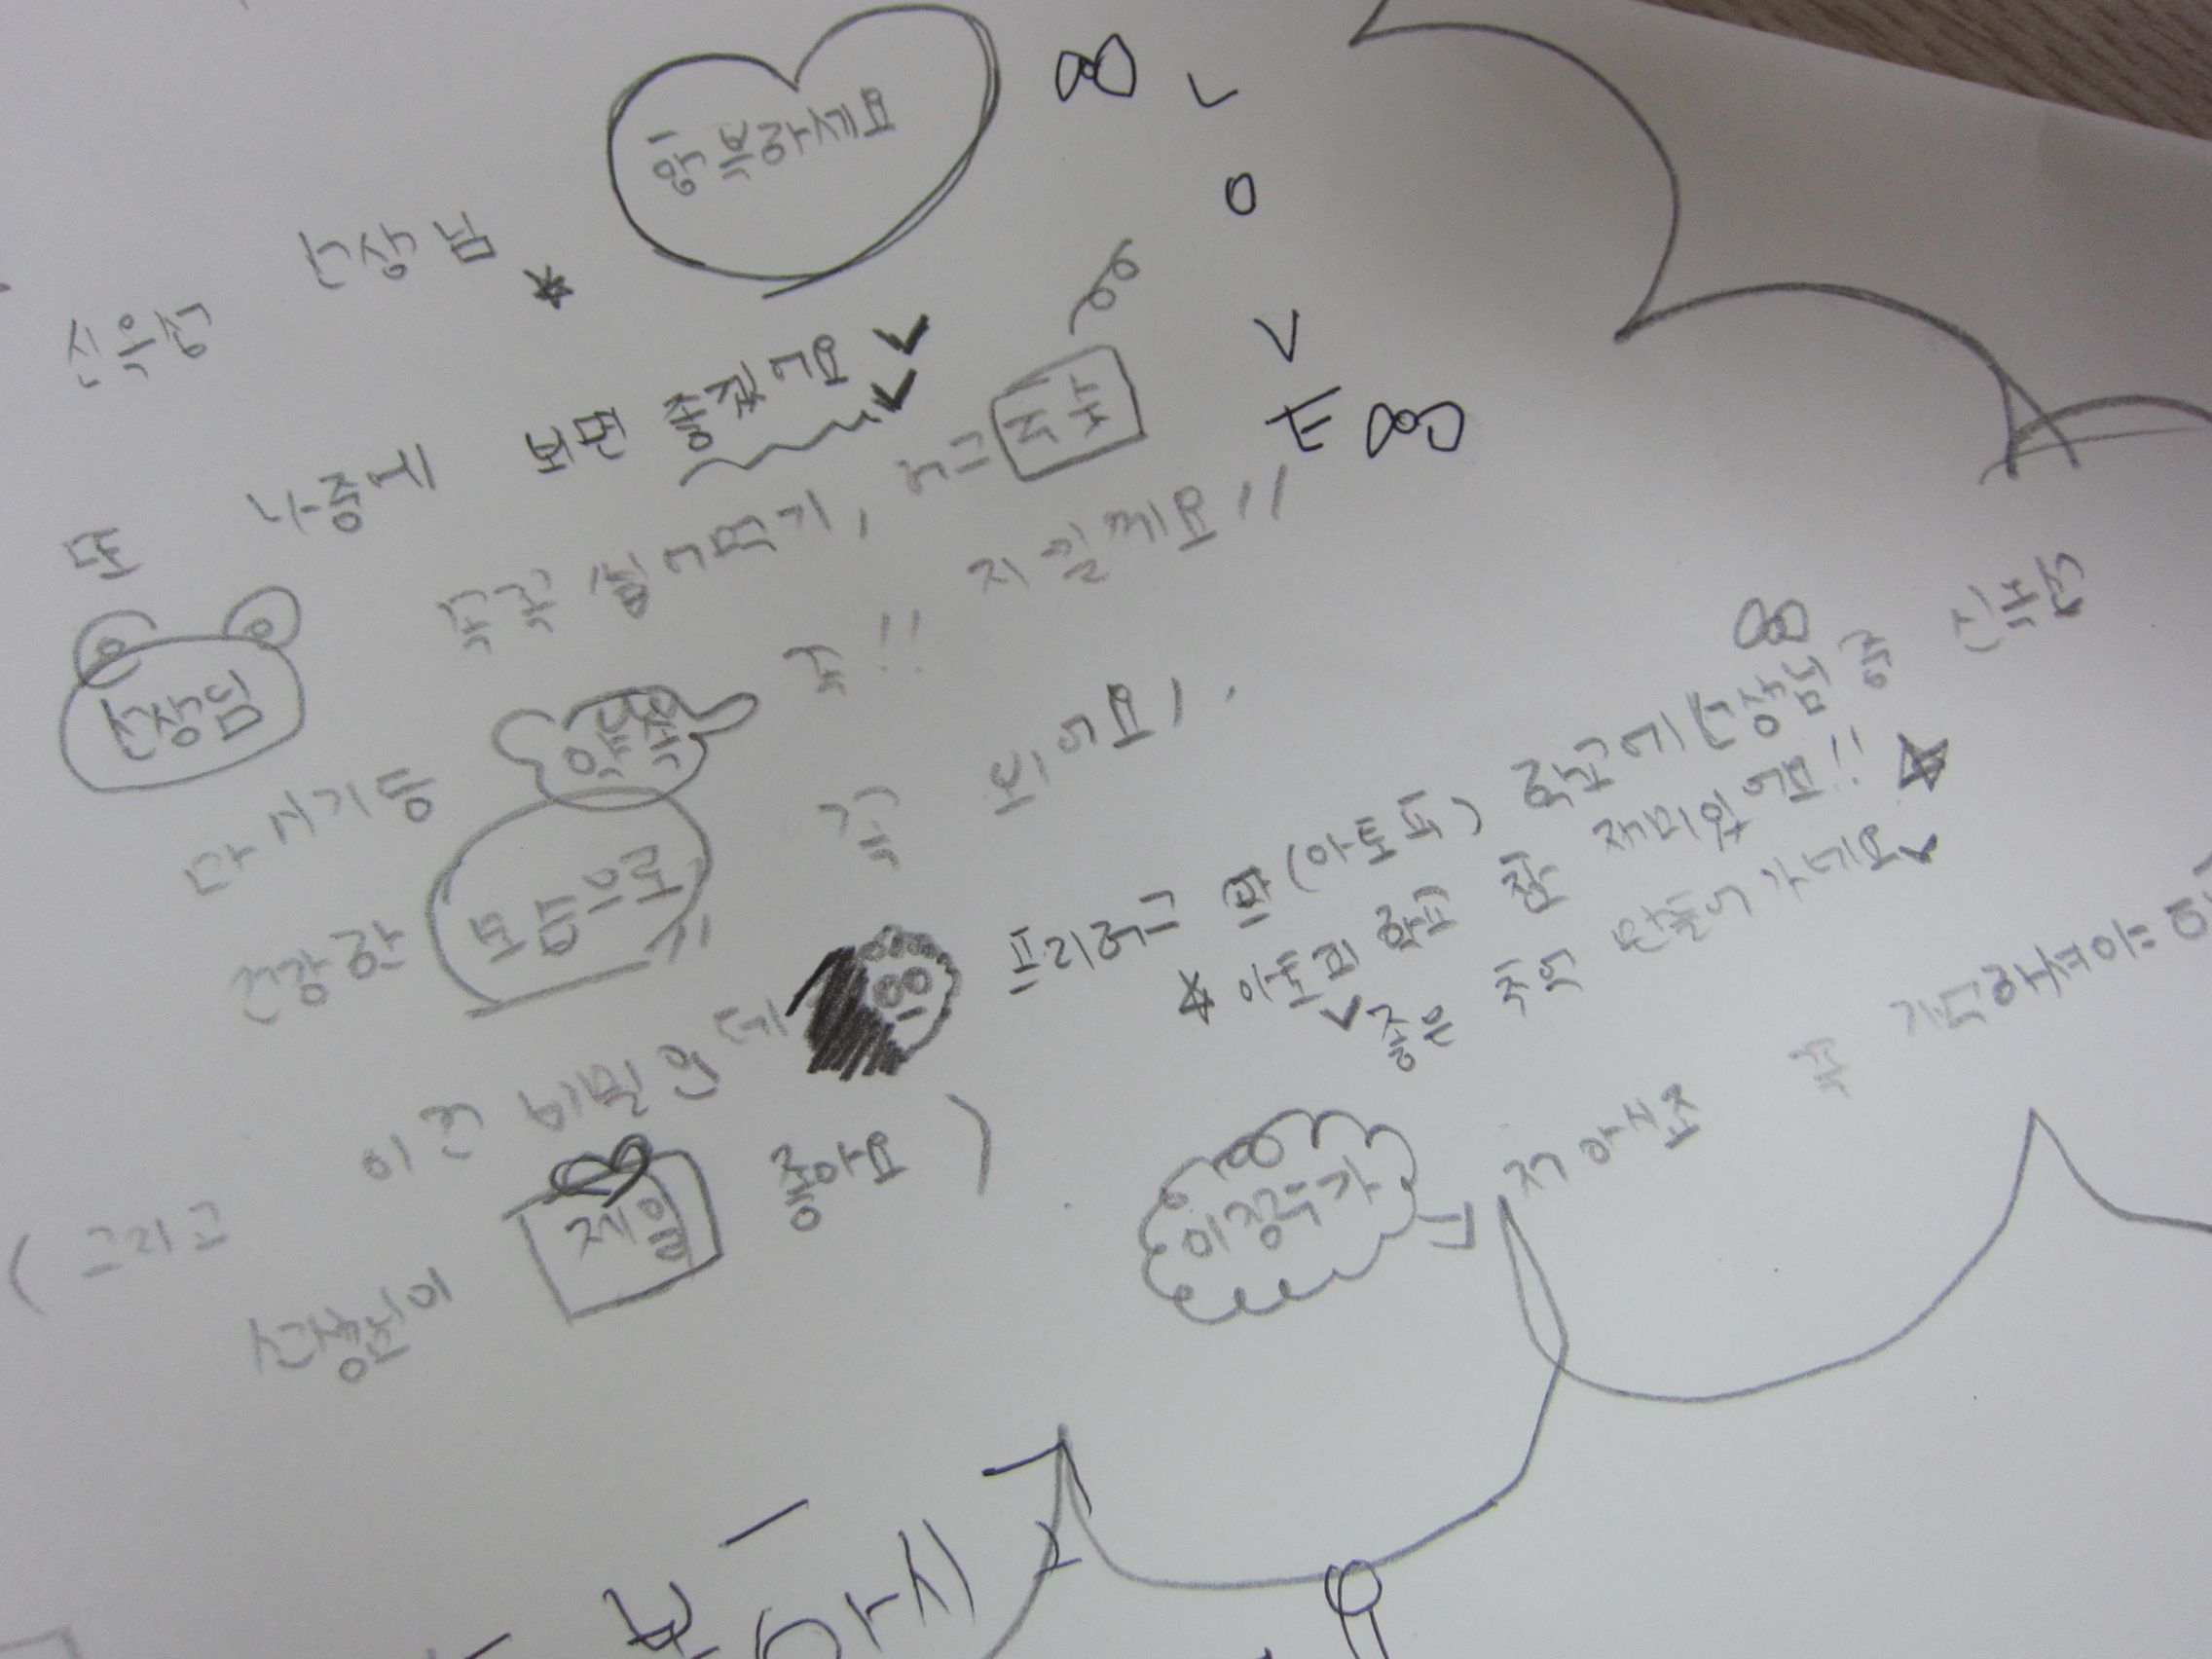 행복하세요
L
O
V
E
신옥섬 선생님
또 나중에 뵈면 좋겠어요
선생님 꼭꼭 씹어먹기, 녹즙
마시기등 약속 꼭!! 지킬께요!!
건강한 모습으로 꼭 뵈어요!!
프리허그 맘(아토피) 학교에 선생님 중 신옥섬
(그리고 이건 비밀인데
아토피 학교 참 재미있어요!!
선생님이 제일 좋아요)
좋은 추억 만들어 가네요
이장주가 저 아시죠 꼭 기억하셔야